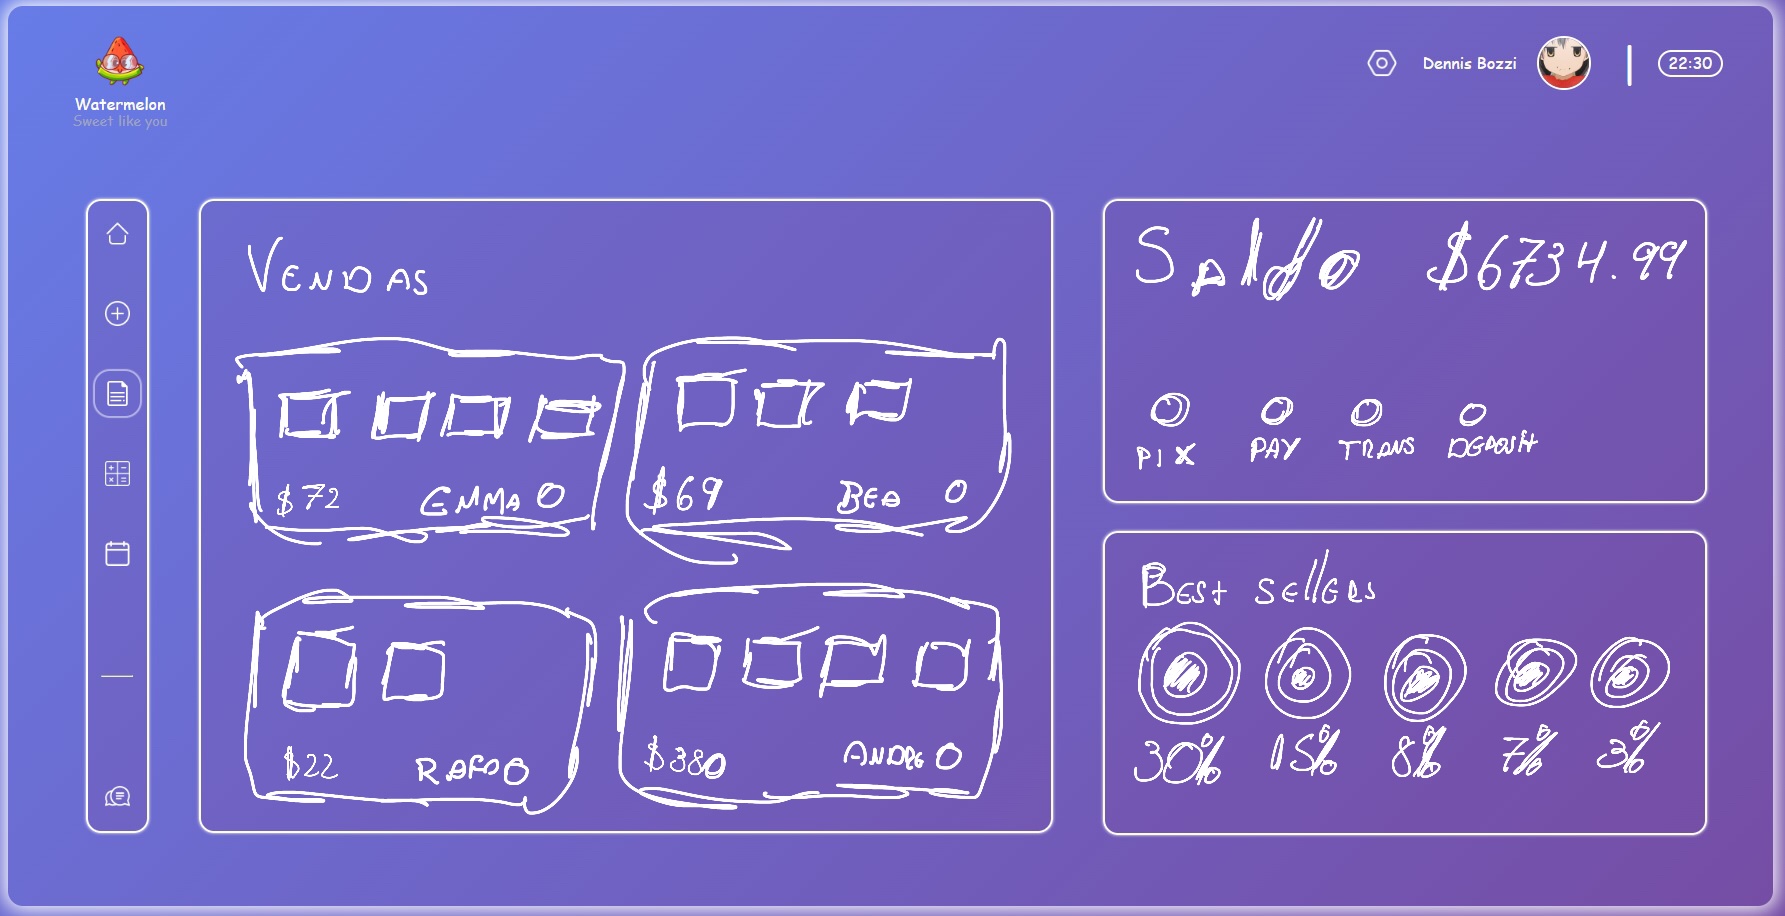 Watermelon
Sweet like you
Dennis Bozzi
22:30
VENDAS
$72 EMMA
$69 BEA
$22 RAFA
$380 ANDRE
Saldo $6734.99
PIX PAY TRANS
BEST SELLERS
30% 15% 8% 7% 3%